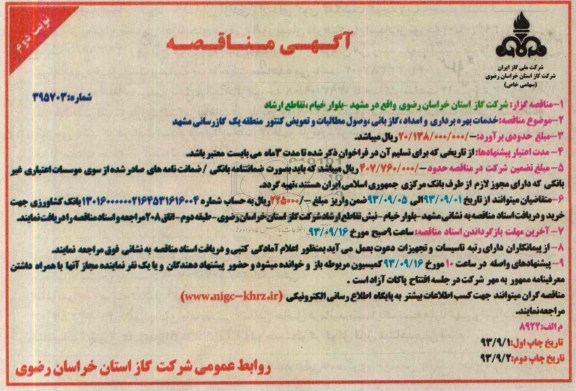 نوبت دوم
آگهی مناقصه
شرکت ملی گاز ایران
شرکت گاز استان خراسان رضوی
(سهامی خاص)
شماره: ۳۹۵۷۰۳
۱- مناقصه گزار: شرکت گاز استان خراسان رضوی واقع در مشهد - بلوار خیام، تقاطع ارشاد
۲- موضوع مناقصه: خدمات بهره برداری و امداد، گازبانی، وصول مطالبات و تعویض کنتور منطقه یک گازرسانی مشهد
۳- مبلغ حدودی برآورد: -/۲۰/۱۳۸/۰۰۰/۰۰۰ ریال میباشد.
۴- مدت اعتبار پیشنهادها: از تاریخی که برای تسلیم آن در فراخوان ذکر شده تا مدت ۳ ماه می بایست معتبر باشد.
۵- مبلغ تضمین شرکت در مناقصه حدود -/۴۰۷/۷۶۰/۰۰۰ ریال میباشد که باید بصورت ضمانتنامه بانکی / ضمانت نامه های صادر شده از سوی موسسات اعتباری غیر
بانکی که دارای مجوز لازم از طرف بانک مرکزی جمهوری اسلامی ایران هستند، تهیه گردد.
۶- متقاضیان میتوانند از تاریخ ۹۳/۰۹/۰۱ الی ۹۳/۰۹/۰۵ ضمن واریز مبلغ -/۲۲۵۰۰۰ ریال به حساب شماره ۱۳۰۱۶۰۰۰۰۰۰۲۱۶۴۵۳۱۶۱۶۰۰۴ بانک کشاورزی جهت
خرید و دریافت اسناد مناقصه به نشانی مشهد - بلوار خیام - نبش تقاطع ارشاد شرکت گاز استان خراسان رضوی - طبقه دوم - اتاق ۲۰۸ مراجعه و اسناد مناقصه را دریافت نمایند.
۷- آخرین مهلت بازگرداندن اسناد مناقصه: ساعت ۹ صبح مورخ ۹۳/۰۹/۱۶
۸- از پیمانکاران دارای رتبه تاسیسات و تجهیزات دعوت بعمل می آید بمنظور اعلام آمادگی کتبی و دریافت اسناد مناقصه به نشانی فوق مراجعه نمایند.
۹- پیشنهادهای واصله در ساعت ۱۰ مورخ ۹۳/۰۹/۱۶ کمیسیون مربوطه باز و خوانده میشود و حضور پیشنهاد دهندگان و یا یک نفر نماینده مجاز آنها با همراه داشتن
معرفینامه ممهور به مهر شرکت در جلسه افتتاح پاکات آزاد است.
مناقصه گران میتوانند جهت کسب اطلاعات بیشتر به پایگاه اطلاع رسانی الکترونیکی (www.nigc-khrz.ir)
مراجعه نمایند.
م الف: ۸۹۳۲
تاریخ چاپ اول: ۹۳/۹/۱
تاریخ چاپ دوم: ۹۳/۹/۲
روابط عمومی شرکت گاز استان خراسان رضوی